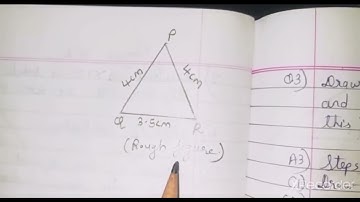 P
4cm 4cm
Q 3.5cm R
(Rough figure)
Q3) Draw
and
this
A3) Steps